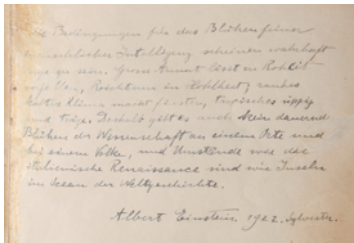 Die Bedingungen für das Blühen feiner
menschlicher Intelligenz scheinen wahrhaft
enge zu sein. Grosse Armut lässt in Rohheit
Reichtum in Hohlheit; rauhes
kaltes Klima macht tropisches üppig
und träge. Deshalb gibt es auch kein dauernd
Blühen der Wissenschaft an einem Orte und
bei einem Volke, und Umstände wie die
italienische Renaissance sind wie Inseln
im Ocean der Weltgeschichte.
Albert Einstein 1922. Sylvester.